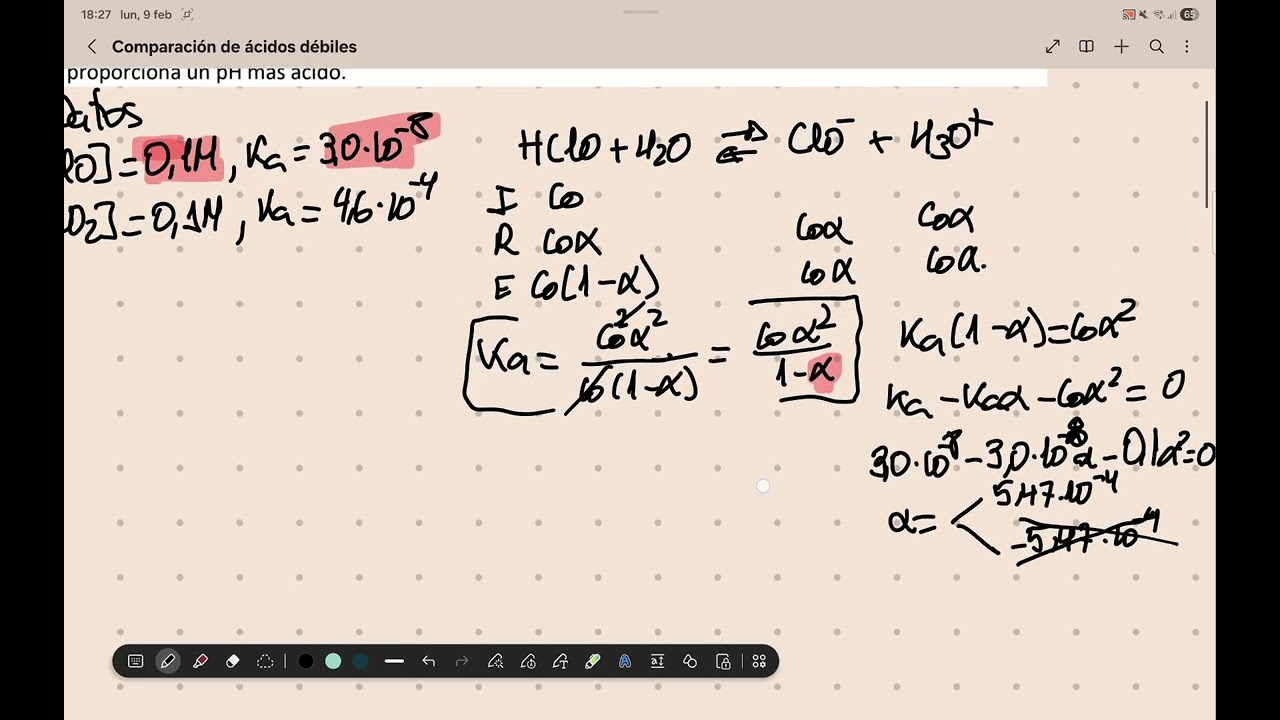 18:27 lun, 9 feb
65
Comparación de ácidos débiles
proporciona un pH más ácido.
Datos
lO] = 0,1M, Ka = 3,0·10⁻⁸
O₂] = 0,1M, Ka = 4,6·10⁻⁴
HClO + H₂O ⇌ ClO⁻ + H₃O⁺
I Co
R Coα Coα Coα
E Co(1-α) Coα Coα.
Ka = Co²α² / Co(1-α) = Coα² / 1-α
Ka(1-α)=Coα²
Ka - Kaα - Coα² = 0
3,0·10⁻⁸ - 3,0·10⁻⁸α - 0,1α²=0
α = < 5,47·10⁻⁴
-5,47·10⁻⁴